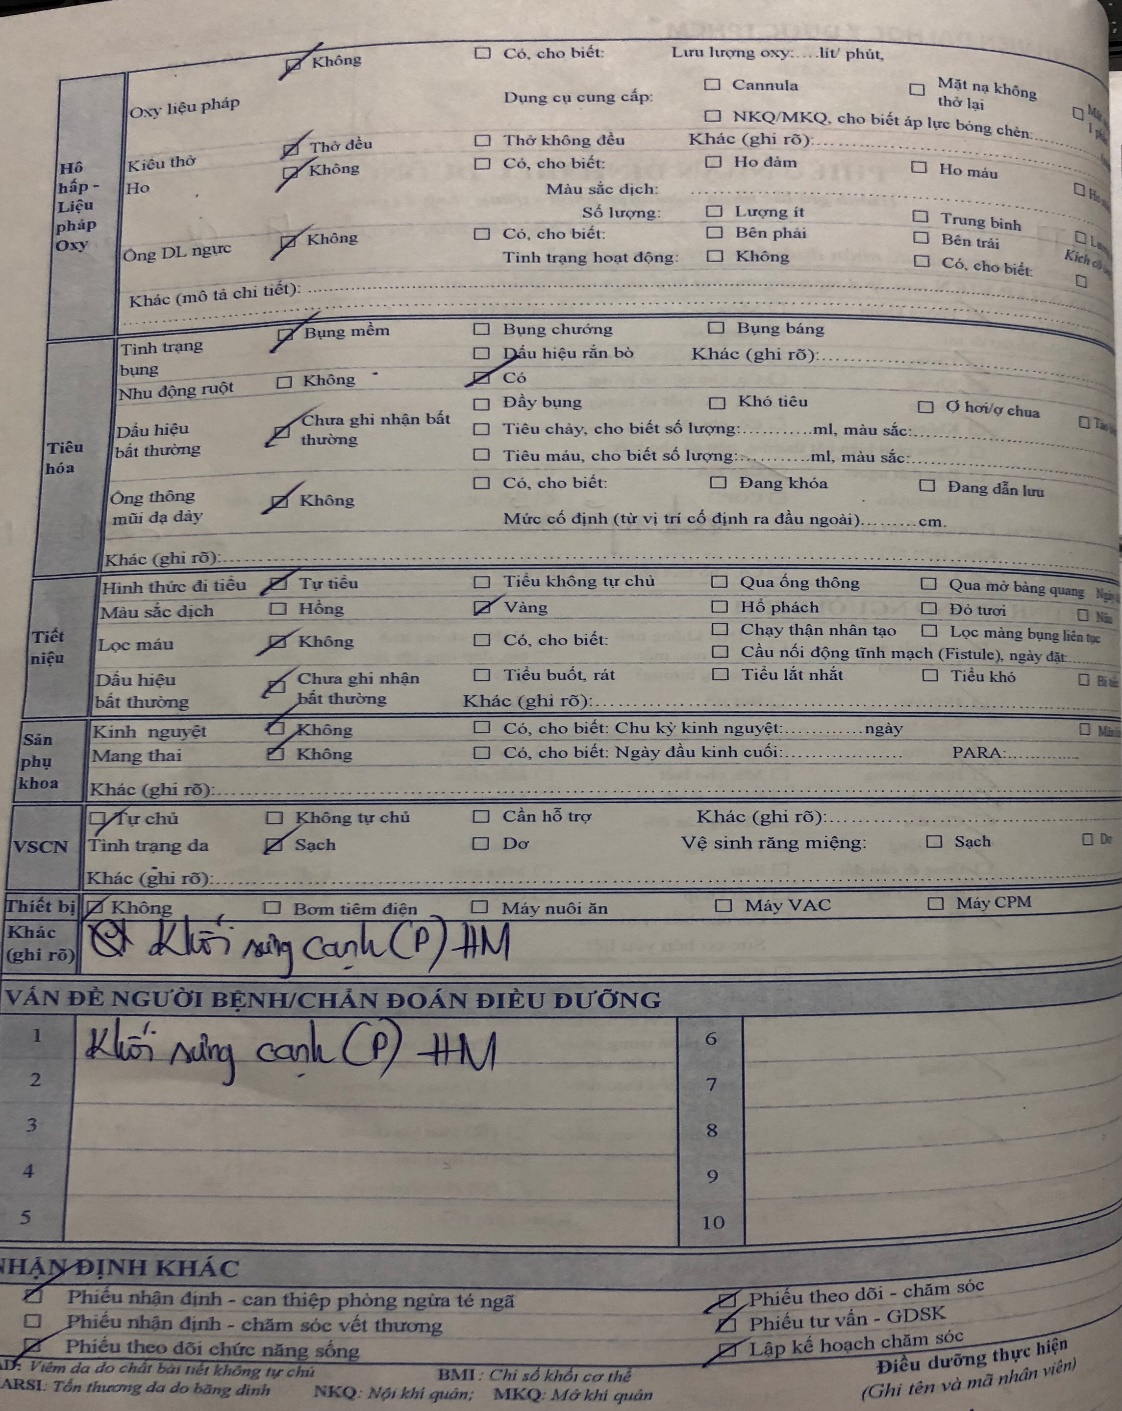 Hô hấp - Liệu pháp Oxy
Oxy liệu pháp
Không
Có, cho biết:
Lưu lượng oxy:....lít/ phút,
Dụng cụ cung cấp:
Cannula
Mặt nạ không thở lại
NKQ/MKQ, cho biết áp lực bóng chèn:
Kiểu thở
Thở đều
Thở không đều
Khác (ghi rõ):
Ho
Không
Có, cho biết:
Ho đàm
Ho máu
Màu sắc dịch:
Số lượng:
Lượng ít
Trung bình
Ống DL ngực
Không
Có, cho biết:
Bên phải
Bên trái
Tình trạng hoạt động:
Không
Có, cho biết:
Khác (mô tả chi tiết):
Tiêu hóa
Tình trạng bụng
Bụng mềm
Bụng chướng
Bụng báng
Dấu hiệu rắn bò
Khác (ghi rõ):
Nhu động ruột
Không
Có
Dấu hiệu bất thường
Chưa ghi nhận bất thường
Đầy bụng
Khó tiêu
Ợ hơi/ợ chua
Tiêu chảy, cho biết số lượng:..........ml, màu sắc:
Tiêu máu, cho biết số lượng:..........ml, màu sắc:
Ống thông mũi dạ dày
Không
Có, cho biết:
Đang khóa
Đang dẫn lưu
Mức cố định (từ vị trí cố định ra đầu ngoài).........cm.
Khác (ghi rõ):
Tiết niệu
Hình thức đi tiểu
Tự tiểu
Tiểu không tự chủ
Qua ống thông
Qua mở bàng quang
Màu sắc dịch
Hồng
Vàng
Hổ phách
Đỏ tươi
Nâu
Lọc máu
Không
Có, cho biết:
Chạy thận nhân tạo
Lọc màng bụng liên tục
Cầu nối động tĩnh mạch (Fistule), ngày đặt:
Dấu hiệu bất thường
Chưa ghi nhận bất thường
Tiểu buốt, rát
Tiểu lắt nhắt
Tiểu khó
Khác (ghi rõ):
Sản phụ khoa
Kinh nguyệt
Không
Có, cho biết: Chu kỳ kinh nguyệt:.............ngày
Mang thai
Không
Có, cho biết: Ngày đầu kinh cuối:
PARA:
Khác (ghi rõ):
VSCN
Tự chủ
Không tự chủ
Cần hỗ trợ
Khác (ghi rõ):
Tình trạng da
Sạch
Dơ
Vệ sinh răng miệng:
Sạch
Dơ
Khác (ghi rõ):
Thiết bị
Không
Bơm tiêm điện
Máy nuôi ăn
Máy VAC
Máy CPM
Khác (ghi rõ)
Khối sưng cạnh (P) HM
VẤN ĐỀ NGƯỜI BỆNH/CHẨN ĐOÁN ĐIỀU DƯỠNG
1 Khối sưng cạnh (P) HM
6
2
7
3
8
4
9
5
10
NHẬN ĐỊNH KHÁC
Phiếu nhận định - can thiệp phòng ngừa té ngã
Phiếu theo dõi - chăm sóc
Phiếu nhận định - chăm sóc vết thương
Phiếu tư vấn - GDSK
Phiếu theo dõi chức năng sống
Lập kế hoạch chăm sóc
AD: Viêm da do chất bài tiết không tự chủ
BMI : Chỉ số khối cơ thể
Điều dưỡng thực hiện
ARSI: Tổn thương da do băng dính
NKQ: Nội khí quản;
MKQ: Mở khí quản
(Ghi tên và mã nhân viên)